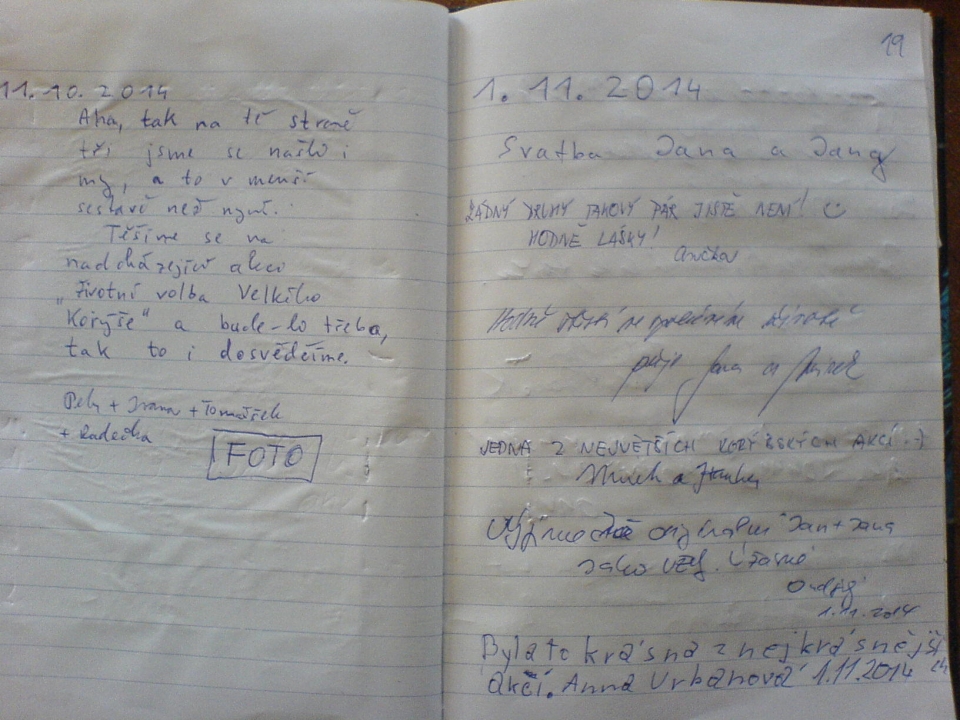 11.10.2014
Aha, tak na té straně
tři jsme se našli i
my, a to v menší
sestavě než nyní.
Těšíme se na
nadcházející akci
„Životní volba Velkého
Korýše“ a bude-li třeba,
tak to i dosvědčíme.
+ Ivana + Tomášek
+ Radečka
FOTO
19
1. 11. 2014
Svatba Jana a Jany
ŽÁDNÝ DRUHÝ TAKOVÝ PÁR JISTĚ NENÍ!
HODNĚ LÁSKY!
Anička
Hodně štěstí ve společném
přeje Jana a
JEDNA Z NEJVĚTŠÍCH KORÝŠSKÝCH AKCÍ :-)
a
Výjimečně originální Jan + Jana
jako vždy. Úžasné
Ondřej
1.11.2014
Byla to krásná z nejkrásnější
akcí. Anna Urbanová 1.11.2014